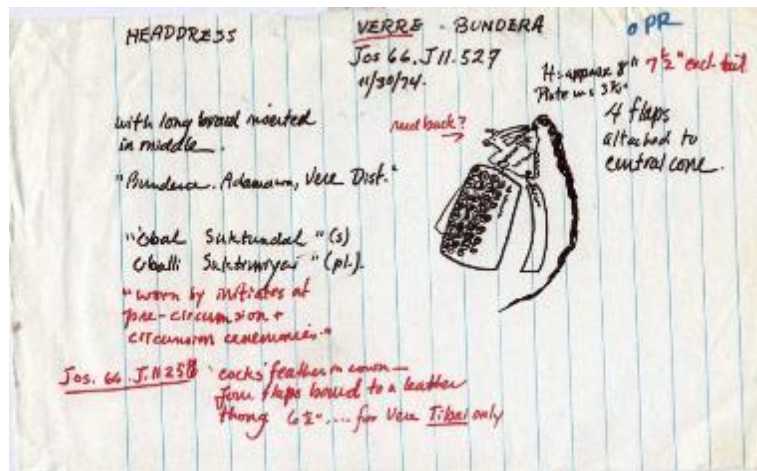 HEADDRESS
VERRE - BUNDERA
OPR
Jos 66.J11.527
11/30/74.
H: approx 8" 7½" excl. tail
Plate w=
4 flaps
attached to
central cone.
with long braid inserted
in middle.
need back?
"Bundera. Adamawa, Vere Dist."
"Obal Suktundal" (s)
Oballi (pl).
"worn by initiates at
pre-circumsion +
circumsion ceremonies."
Jos. 66. J.11 25 'cocks' feather in crown—
four flaps bound to a leather
thong 6½".... for Vere Tibai only